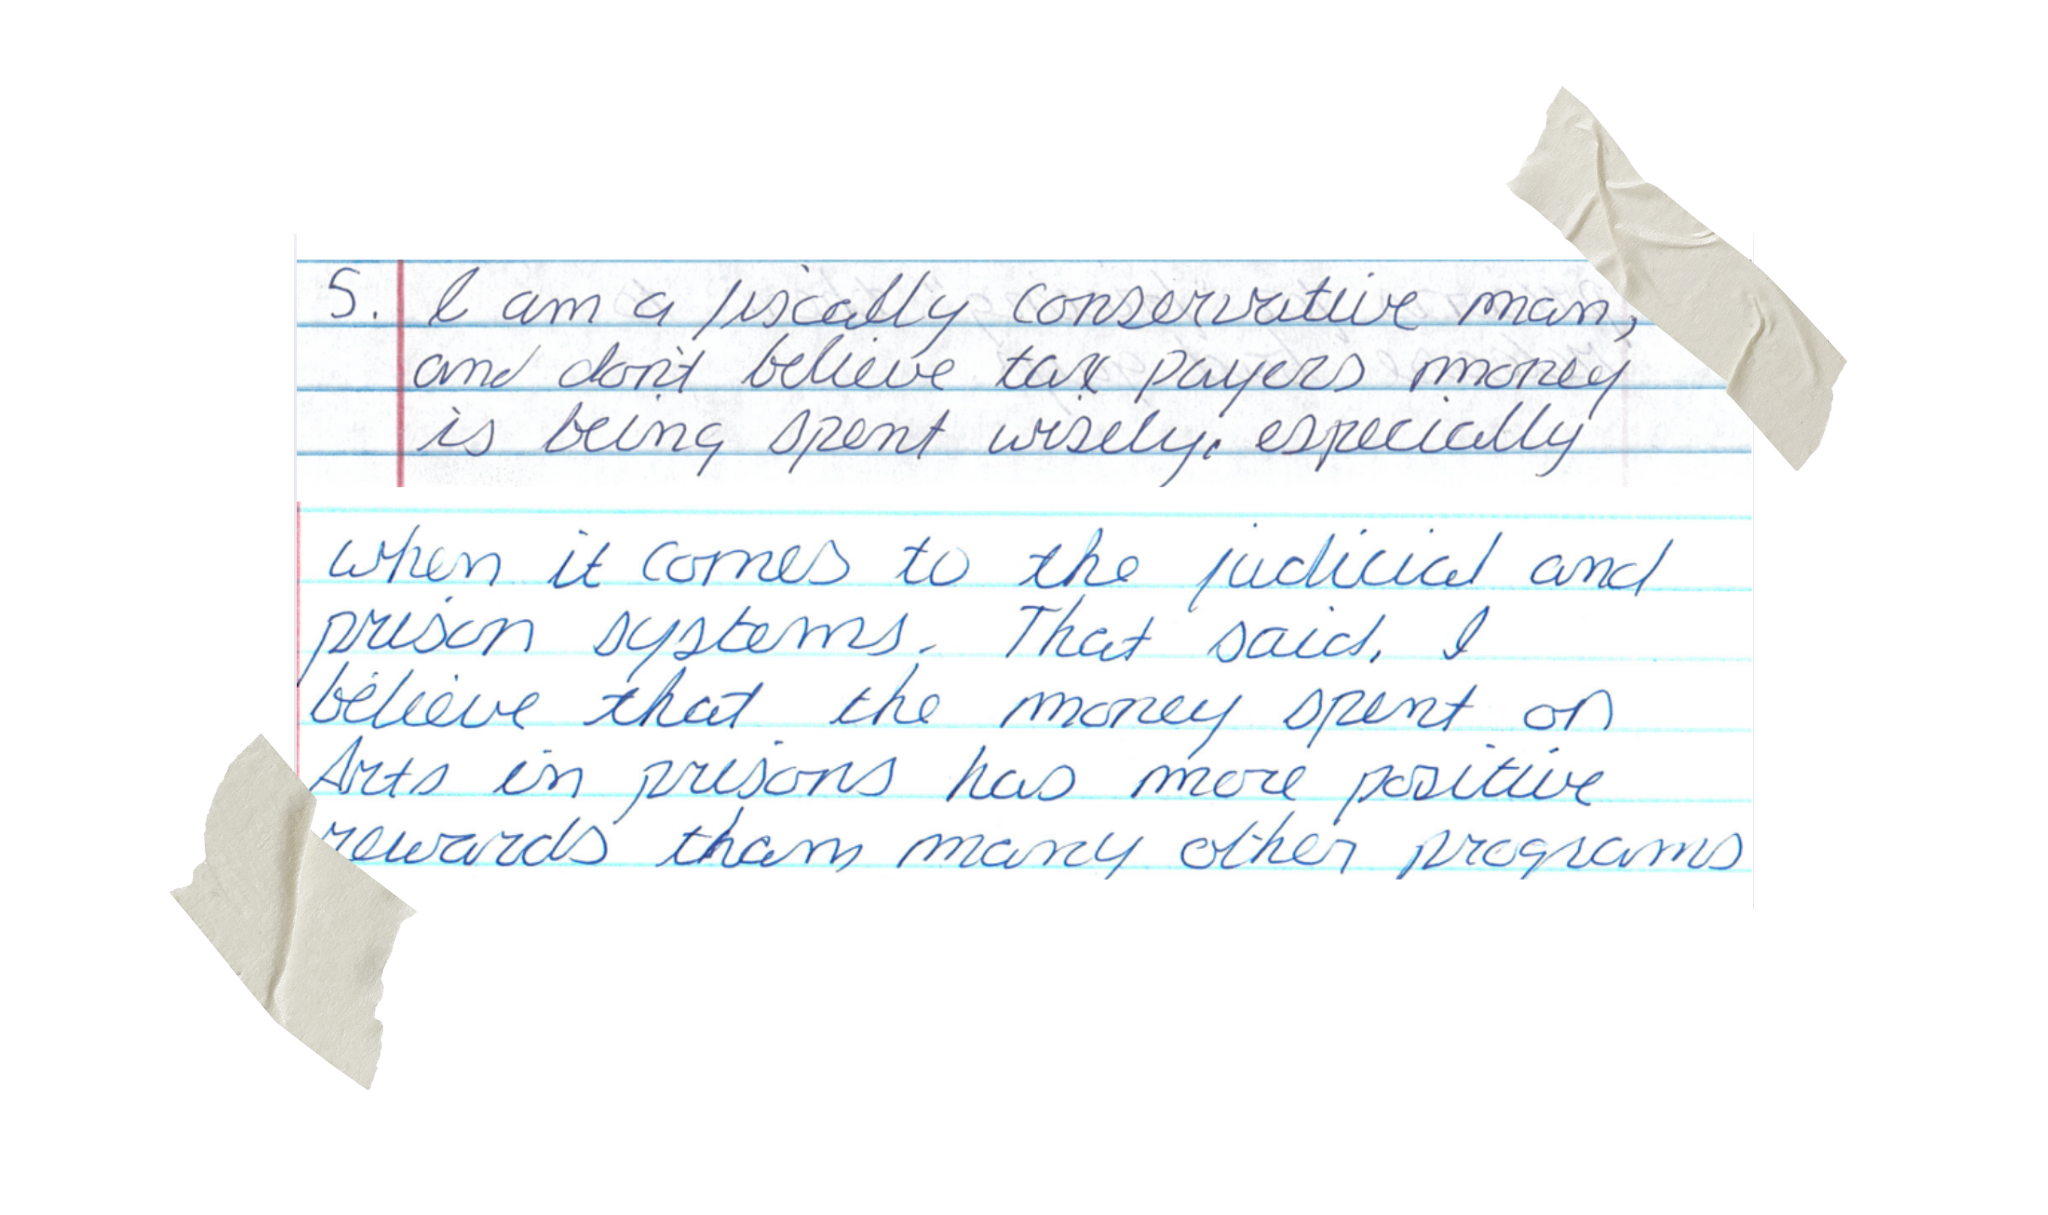 5. I am a fiscally conservative man,
and don't believe tax payers money
is being spent wisely. especially
when it comes to the judicial and
prison systems. That said, I
believe that the money spent on
Arts in prisons has more positive
rewards than many other programs